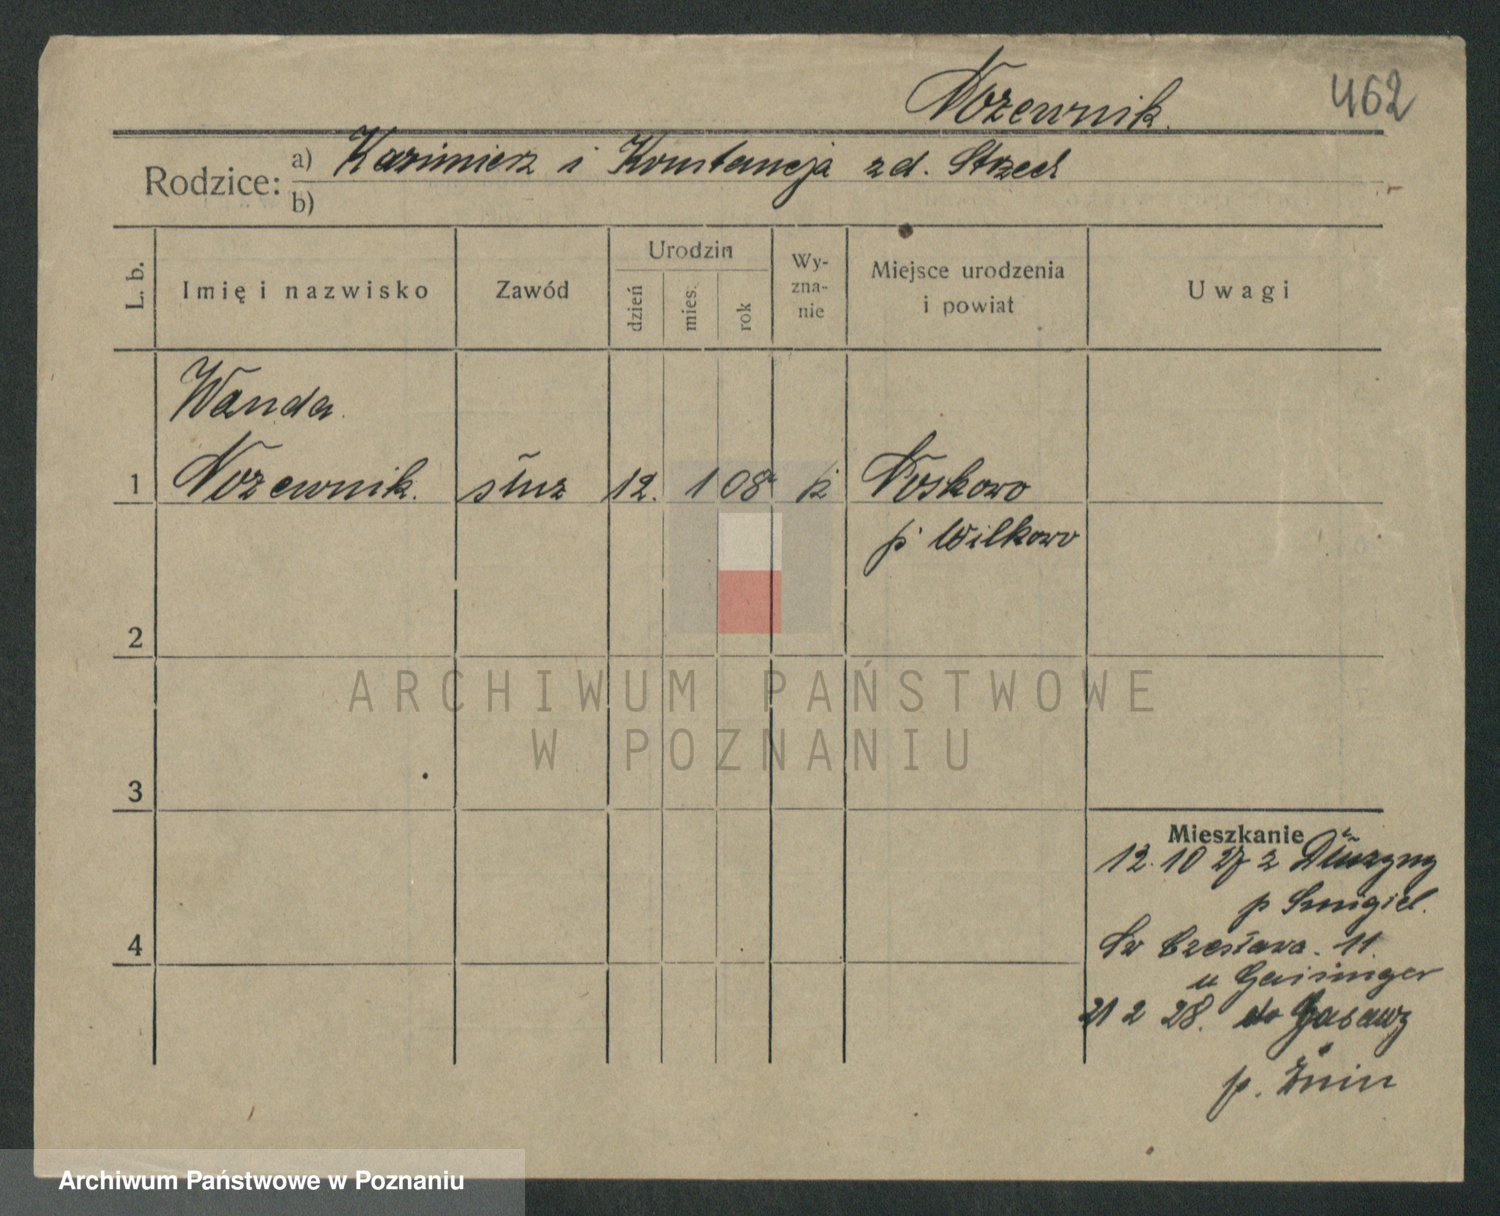 Nozewnik.
462
Rodzice: a) Kazimierz i Konstancja zd. Strzech
b)
L. b.
Imię i nazwisko
Zawód
Urodzin
dzień
mies.
rok
Wy-
zna-
nie
Miejsce urodzenia
i powiat
Uwagi
Wanda.
1 Nozewnik. służ 12. 1 08 k Noskowo
p Wilkowo
2
ARCHIWUM PAŃSTWOWE
W POZNANIU
3
Mieszkanie
12. 10 27 z Dłużyny
p Smigiel.
4
Św Czesława. 11.
u Gensinger
21 2 28. do Gasawy
p. Żnin
Archiwum Państwowe w Poznaniu